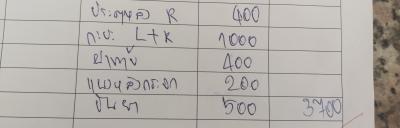 ประตูหลัง R 400
กะบะ L+R 1000
ฝาท้าย 400
แผงหลังกระบะ 200
ขันยา 500 3700